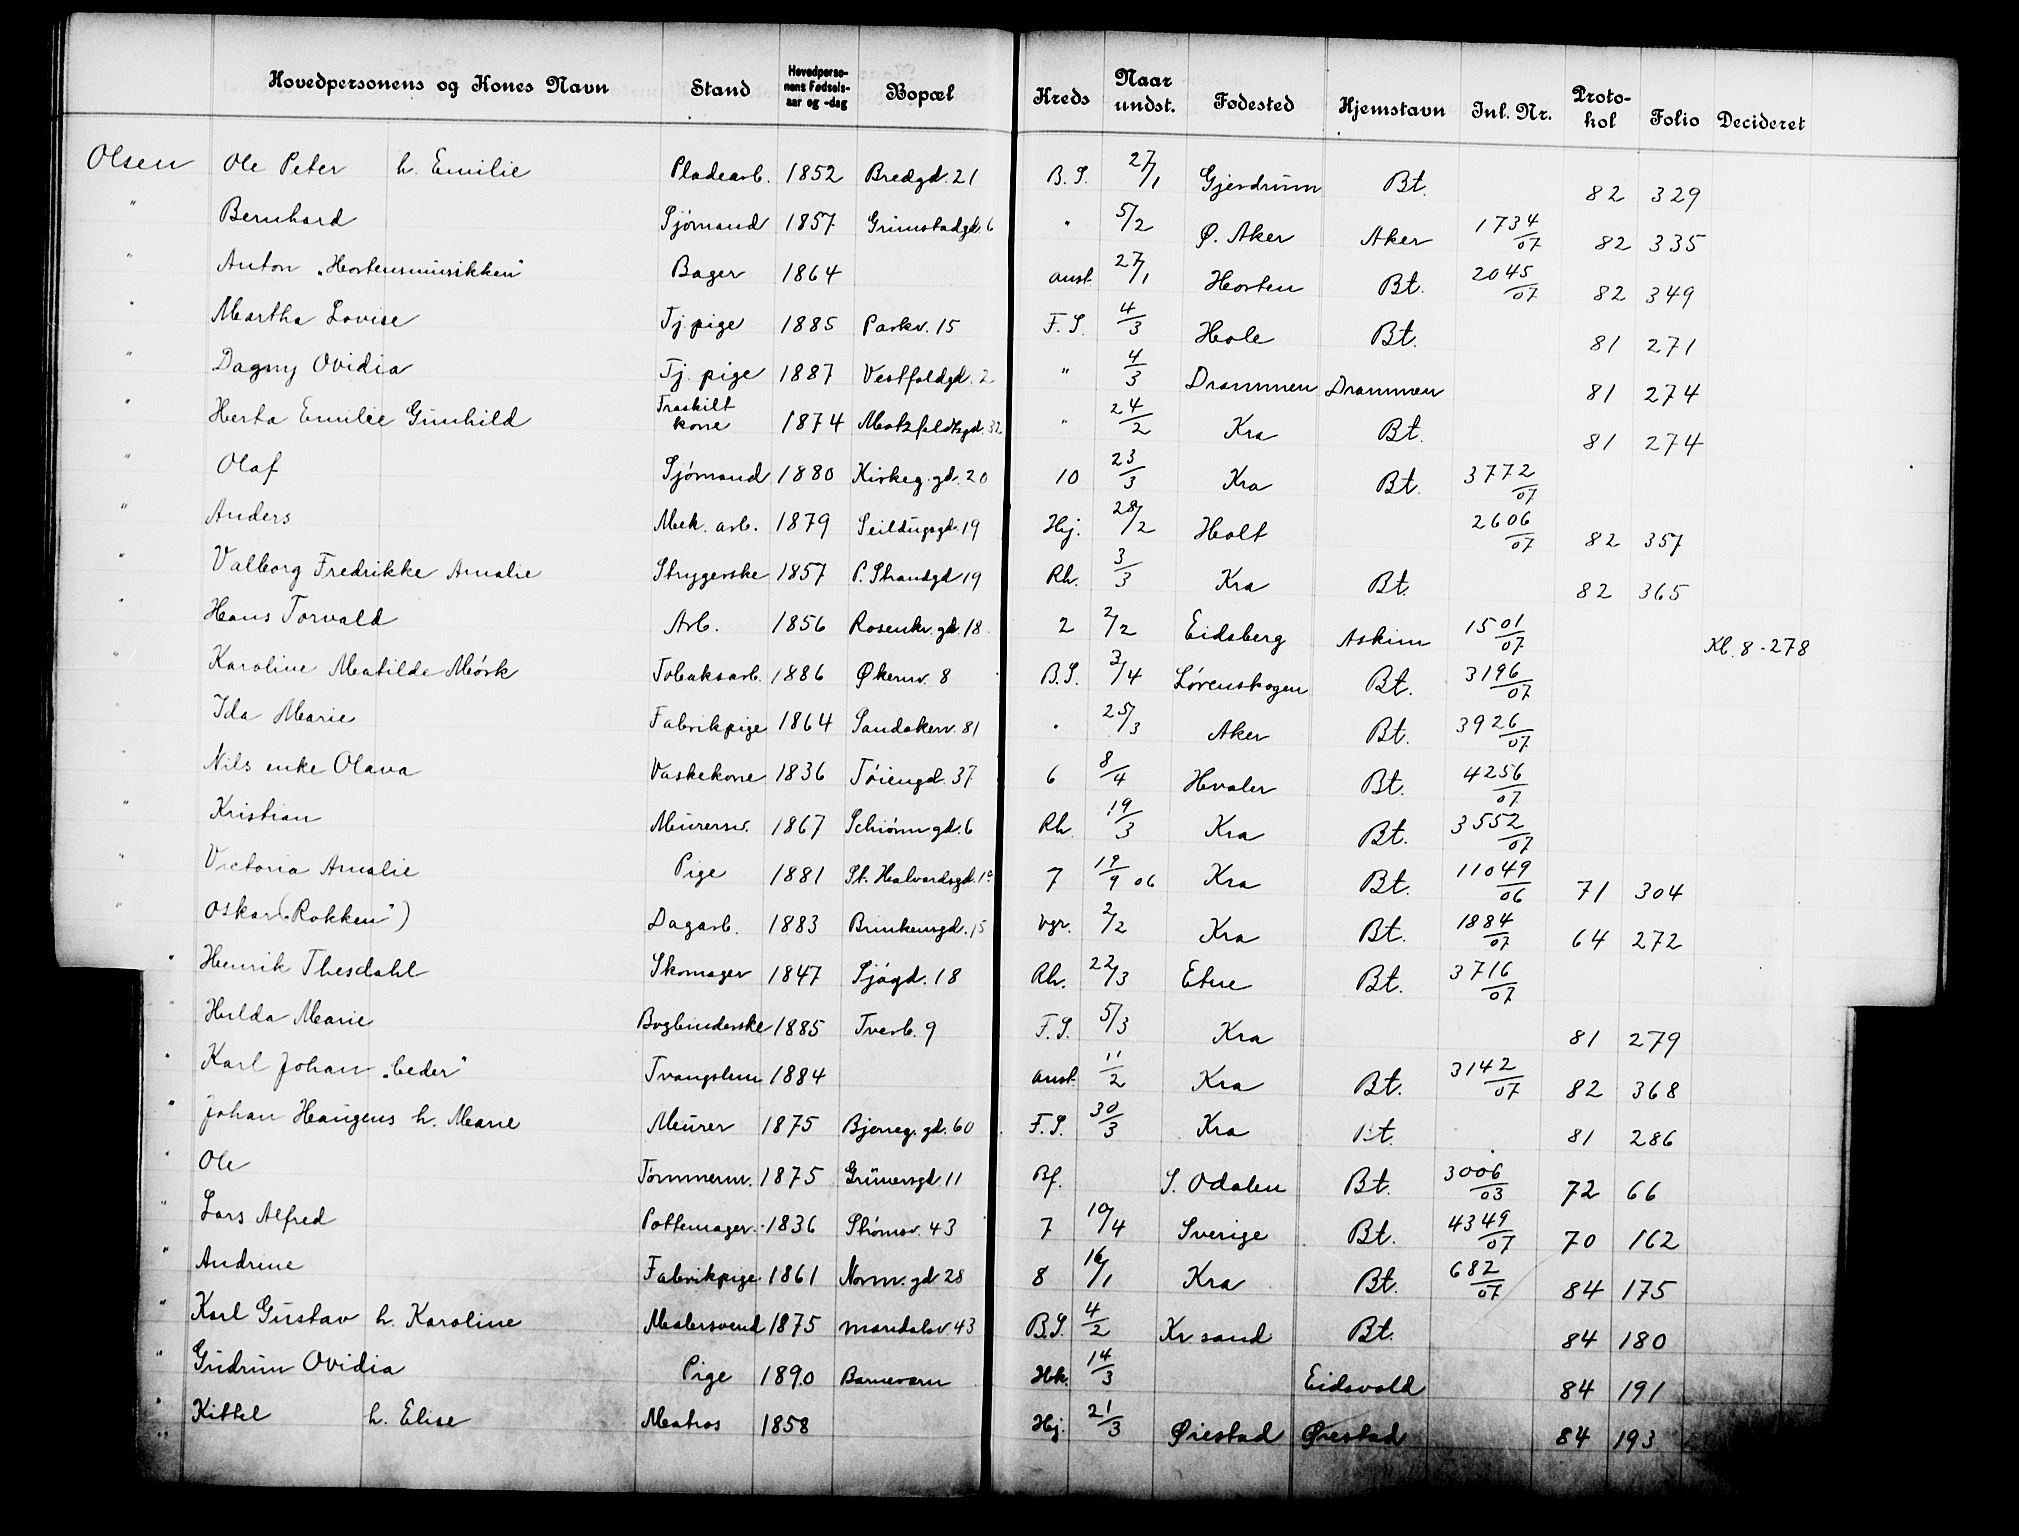 Hovedpersonens og Kones Navn Stand Hovedperso-nens Fødsels-aar og -dag Bopæl Kreds Naar undst. Fødested Hjemstavn Int. Nr. Proto-kol Folio Decideret
Olsen Ole Peter h. Emilie Pladearb. 1852 Bredgd. 21 B.S. 27/1 Gjerdrum Bt. 82 329
" Bernhard Sjømand 1857 Grimstadgd. 6 " 5/2 Ø. Aker Aker 1734/07 82 335
" Anton „Hortensmusikken" Bager 1864 anst. 27/1 Horten Bt. 2045/07 82 349
" Martha Lovise Tj. pige 1885 Parkv. 15 F.S. 4/3 Hole Bt. 81 271
" Dagny Ovidia Tj. pige 1887 Vestfoldgd. 2 " 4/3 Drammen Drammen 81 274
" Herta Emilie Gunhild Fraskilt kone 1874 Motzfeldtsgd. 32 " 24/2 Kra Bt. 81 274
" Olaf Sjømand 1880 Kirkeg. gd. 20 10 23/3 Kra Bt. 3772/07
" Anders Mek. arb. 1879 Seildugsgd. 19 Hj. 28/2 Holt 2606/07 82 357
" Valborg Fredrikke Amalie Strygerske 1857 P. Strandgd 19 Rh. 3/3 Kra Bt. 82 365
" Hans Torvald Arb. 1856 Rosenkr. gd. 18 2 2/2 Eidsberg Askim 1501/07 Kl. 8-278
" Karoline Matilde Mørk Tobaksarb. 1886 Økernv. 8 B.S. 3/4 Lørenskogen Bt. 3196/07
Ida Marie Fabrikpige 1864 Sandakerv. 81 " 25/3 Aker Bt. 3926/07
Nils enke Olava Vaskekone 1836 Tøiengd. 37 6 8/4 Hvaler Bt. 4256/07
" Kristian Murersv. 1867 Schiønn gd. 6 Rh. 19/3 Kra Bt. 3552/07
" Victoria Amalie Pige 1881 St. Halvardsgd. 1a 7 19/9 06 Kra Bt. 11049/06 71 304
" Oskar („Rokken") Dagarb. 1883 Brinkensgd. 15 vgr. 2/2 Kra Bt. 1884/07 64 272
" Henrik Thesdahl Skomager 1847 Sjøgd. 18 Rh. 22/3 Etne Bt. 3716/07
" Hulda Marie Bogbinderske 1885 Tverb. 9 F.S. 5/3 Kra 81 279
" Karl Johan „Ceder" Tvangslem 1884 anst. 11/2 Kra Bt. 3142/07 82 368
" Johan Haugens h. Marie Murer 1875 Bjerreg. gd. 60 F.S. 30/3 Kra Bt. 81 286
" Ole Tømmerm. 1875 Grünersgd. 11 Bf. S. Odalen Bt. 3006/03 72 66
" Lars Alfred Pottemager. 1836 Strømsv. 43 7 10/4 Sverige Bt. 4349/07 70 162
" Andrine Fabrikpige 1861 Norm. gd 28 8 16/1 Kra Bt. 682/07 84 175
" Karl Gustav h. Karoline Malersvend 1875 Maridalsv 43 B.S. 4/2 Kr. sand Bt. 84 180
" Gudrun Ovidia Pige 1890 Barnevern Hk. 14/3 Eidsvold 84 191
" Kittel h. Elise Matros 1858 Hj. 21/3 Øiestad Øiestad 84 193
"